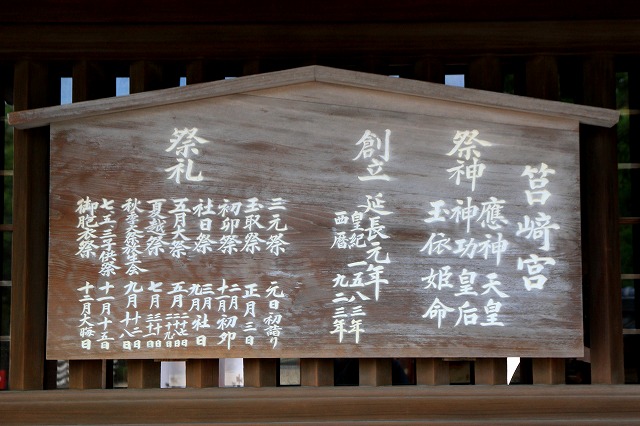 筥崎宮
祭神
應神天皇
神功皇后
玉依姫命
創立
延長元年
皇紀一五八三年
西暦九二三年
祭礼
三元祭 元日初詣り
玉取祭 正月三日
初卯祭 二月十一月初卯
社日祭 三月九月社日
五月大祭 五月
夏越祭 七月
秋季大祭放生会 九月十二日十八日
七五三子供祭 十一月十五日
御胞衣祭 十二月大晦日